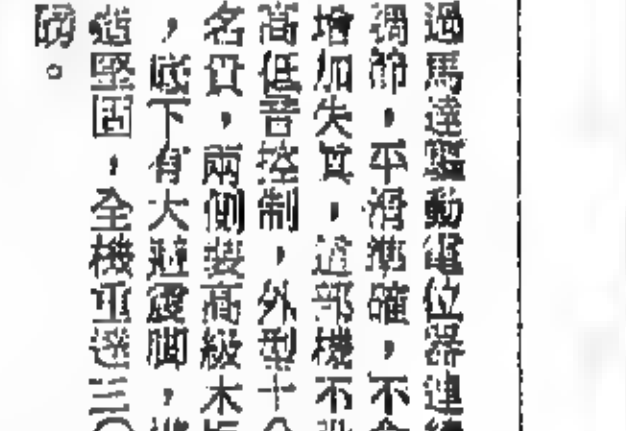 過馬達驅動電位器連續
調節，平滑準確，不會
增加失真，這部機不設
高低音控制，外型十分
名貴，兩側裝高級木板
，底下有大避震脚，構
造堅固，全機重達三〇
磅。